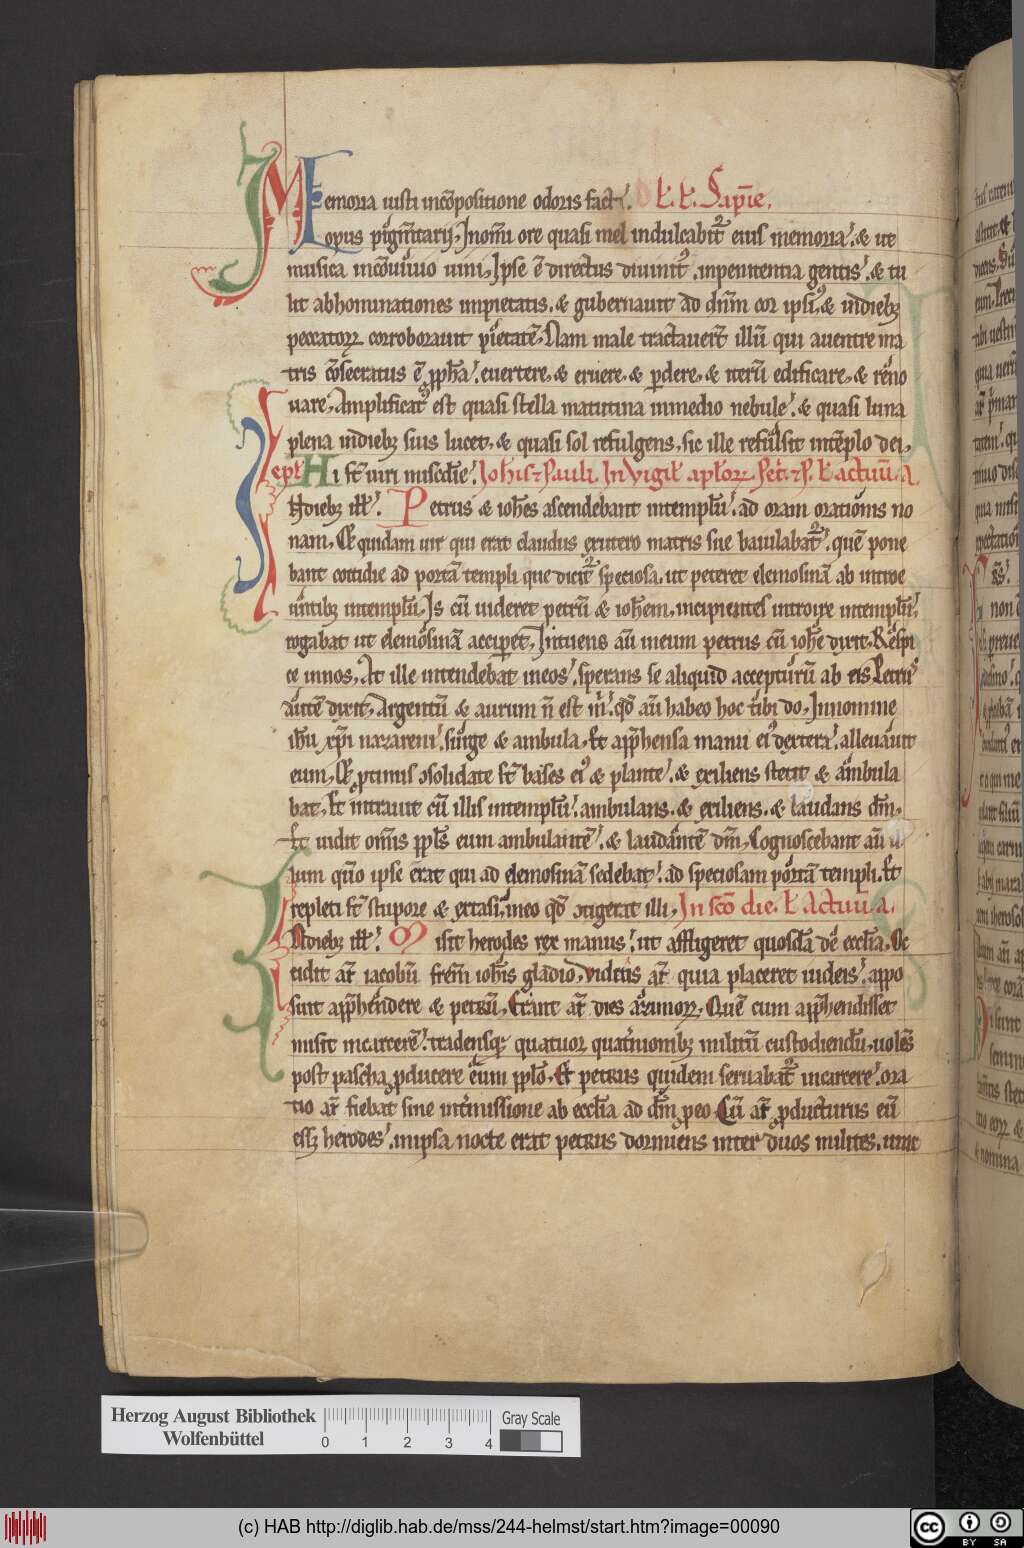 MEmoria iusti incōpositione odoris facta. Lc̄ L. Sapīe.
opus pigm̄tarij. Inom̄i ore quasi mel indulcabit᷑ eius memoria. & ut
musica incōuiuio uini. Ipse ē directus diuinit᷑. inpenitentia gentis. & tu
lit abhominationes impietatis. & gubernauit ad dn̄m cor ipsi᷒. & indieb;
peccatoꝝ corroborauit pietatē. Nam male tractauer̄t illū qui auentre ma
tris cōsecratus ē ꝓph̄a. euertere. & eruere. & ꝑdere. & iterū edificare. & reno
uare. Amplificat᷒ est quasi stella matutina inmedio nebule. & quasi luna
plena indieb; suis lucet. & quasi sol refulgens. sic ille refulsit intēplo dei.
Hi st̄ uiri mis̄cdīe. Ioh̄is ⁊ Pauli. In Vigil̄ apl̄oꝝ. Pet. ⁊ P. L̄ actuū A.
Indieb; ill̄. Petrus & ioh̄es ascendebant intemplū. ad oram orationis no
nam. Et quidam uir qui erat claudus exutero matris sue baiulabat᷑. quē pone
bant cottidie ad portā templi que dicit᷑ speciosa. ut peteret elemosinā ab introe
untib; intemplū. Is cū uideret petrū & ioh̄em. incipientes introire intemplū.
rogabat ut elemosinā acciperet. Intuens aū ineum petrus cū ioh̄e dixit. Respi
ce innos. At ille intendebat ineos. sperans se aliquid accepturū ab eis. Petrus
autē dixit. Argentū & aurum n̄ est m̄. qd̄ aū habeo hoc tibi do. Innomine
ih̄u xp̄i nazareni. surge & ambula. Et appr̄hensa manu ei᷒ dextera. alleuauit
eum. Et ꝓtinus ɔsolidate st̄ bases ei᷒ & plante. & exiliens stetit & ambula
bat. Et intrauit cū illis intemplū. ambulans. & exiliens. & laudans dm̄.
Et uidit om̄is ppl̄s eum ambulantē. & laudantē dm̄. Cognoscebant aū il
lum qm̄o ipse erat qui ad elemosinā sedebat. ad speciosam portā templi. Et
repleti st̄ stupore & extasi. ineo qd̄ ɔtigerat illi. In sc̄o die. L̄ Actuū A.
Indieb; ill̄. Misit herodes rex manus. ut affligeret quosdā de eccl̄ia. Oc
cidit aūt iacobū frēm ioh̄is gladio. Vidēs aūt quia placeret iudeis. appo
suit appr̄hendere & petrū. Erant aūt dies azimoꝝ. Quē cum appr̄hendisset
misit incarcerē. tradensq; quatuor quaternionib; militū custodiendū. uolēs
post pascha ꝓducere eum ppl̄o. Et petrus quidem seruabat᷑ incarcere. ora
tio aūt fiebat sine int̄missione ab eccl̄ia ad dm̄ ꝓ eo. Cū aūt ꝓducturus eū
eēt herodes. inipsa nocte erat petrus dormiens inter duos milites. uinc
Herzog August Bibliothek
Wolfenbüttel
0 1 2 3 4
Gray Scale
(c) HAB http://diglib.hab.de/mss/244-helmst/start.htm?image=00090
cc BY SA